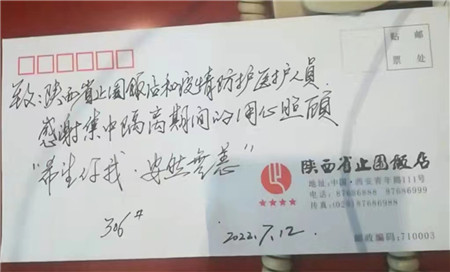 贴 邮
票 处
致:陕西省止园饭店和疫情防护医护人员
感谢集中隔离期间的用心照顾
"希望你我·安然無恙"
陕西省止园饭店
地址:中国·西安青年路111号
电话:87686888 87686999
传真:(029)87686988
★★★★
306#
2022.7.12
邮政编码:710003